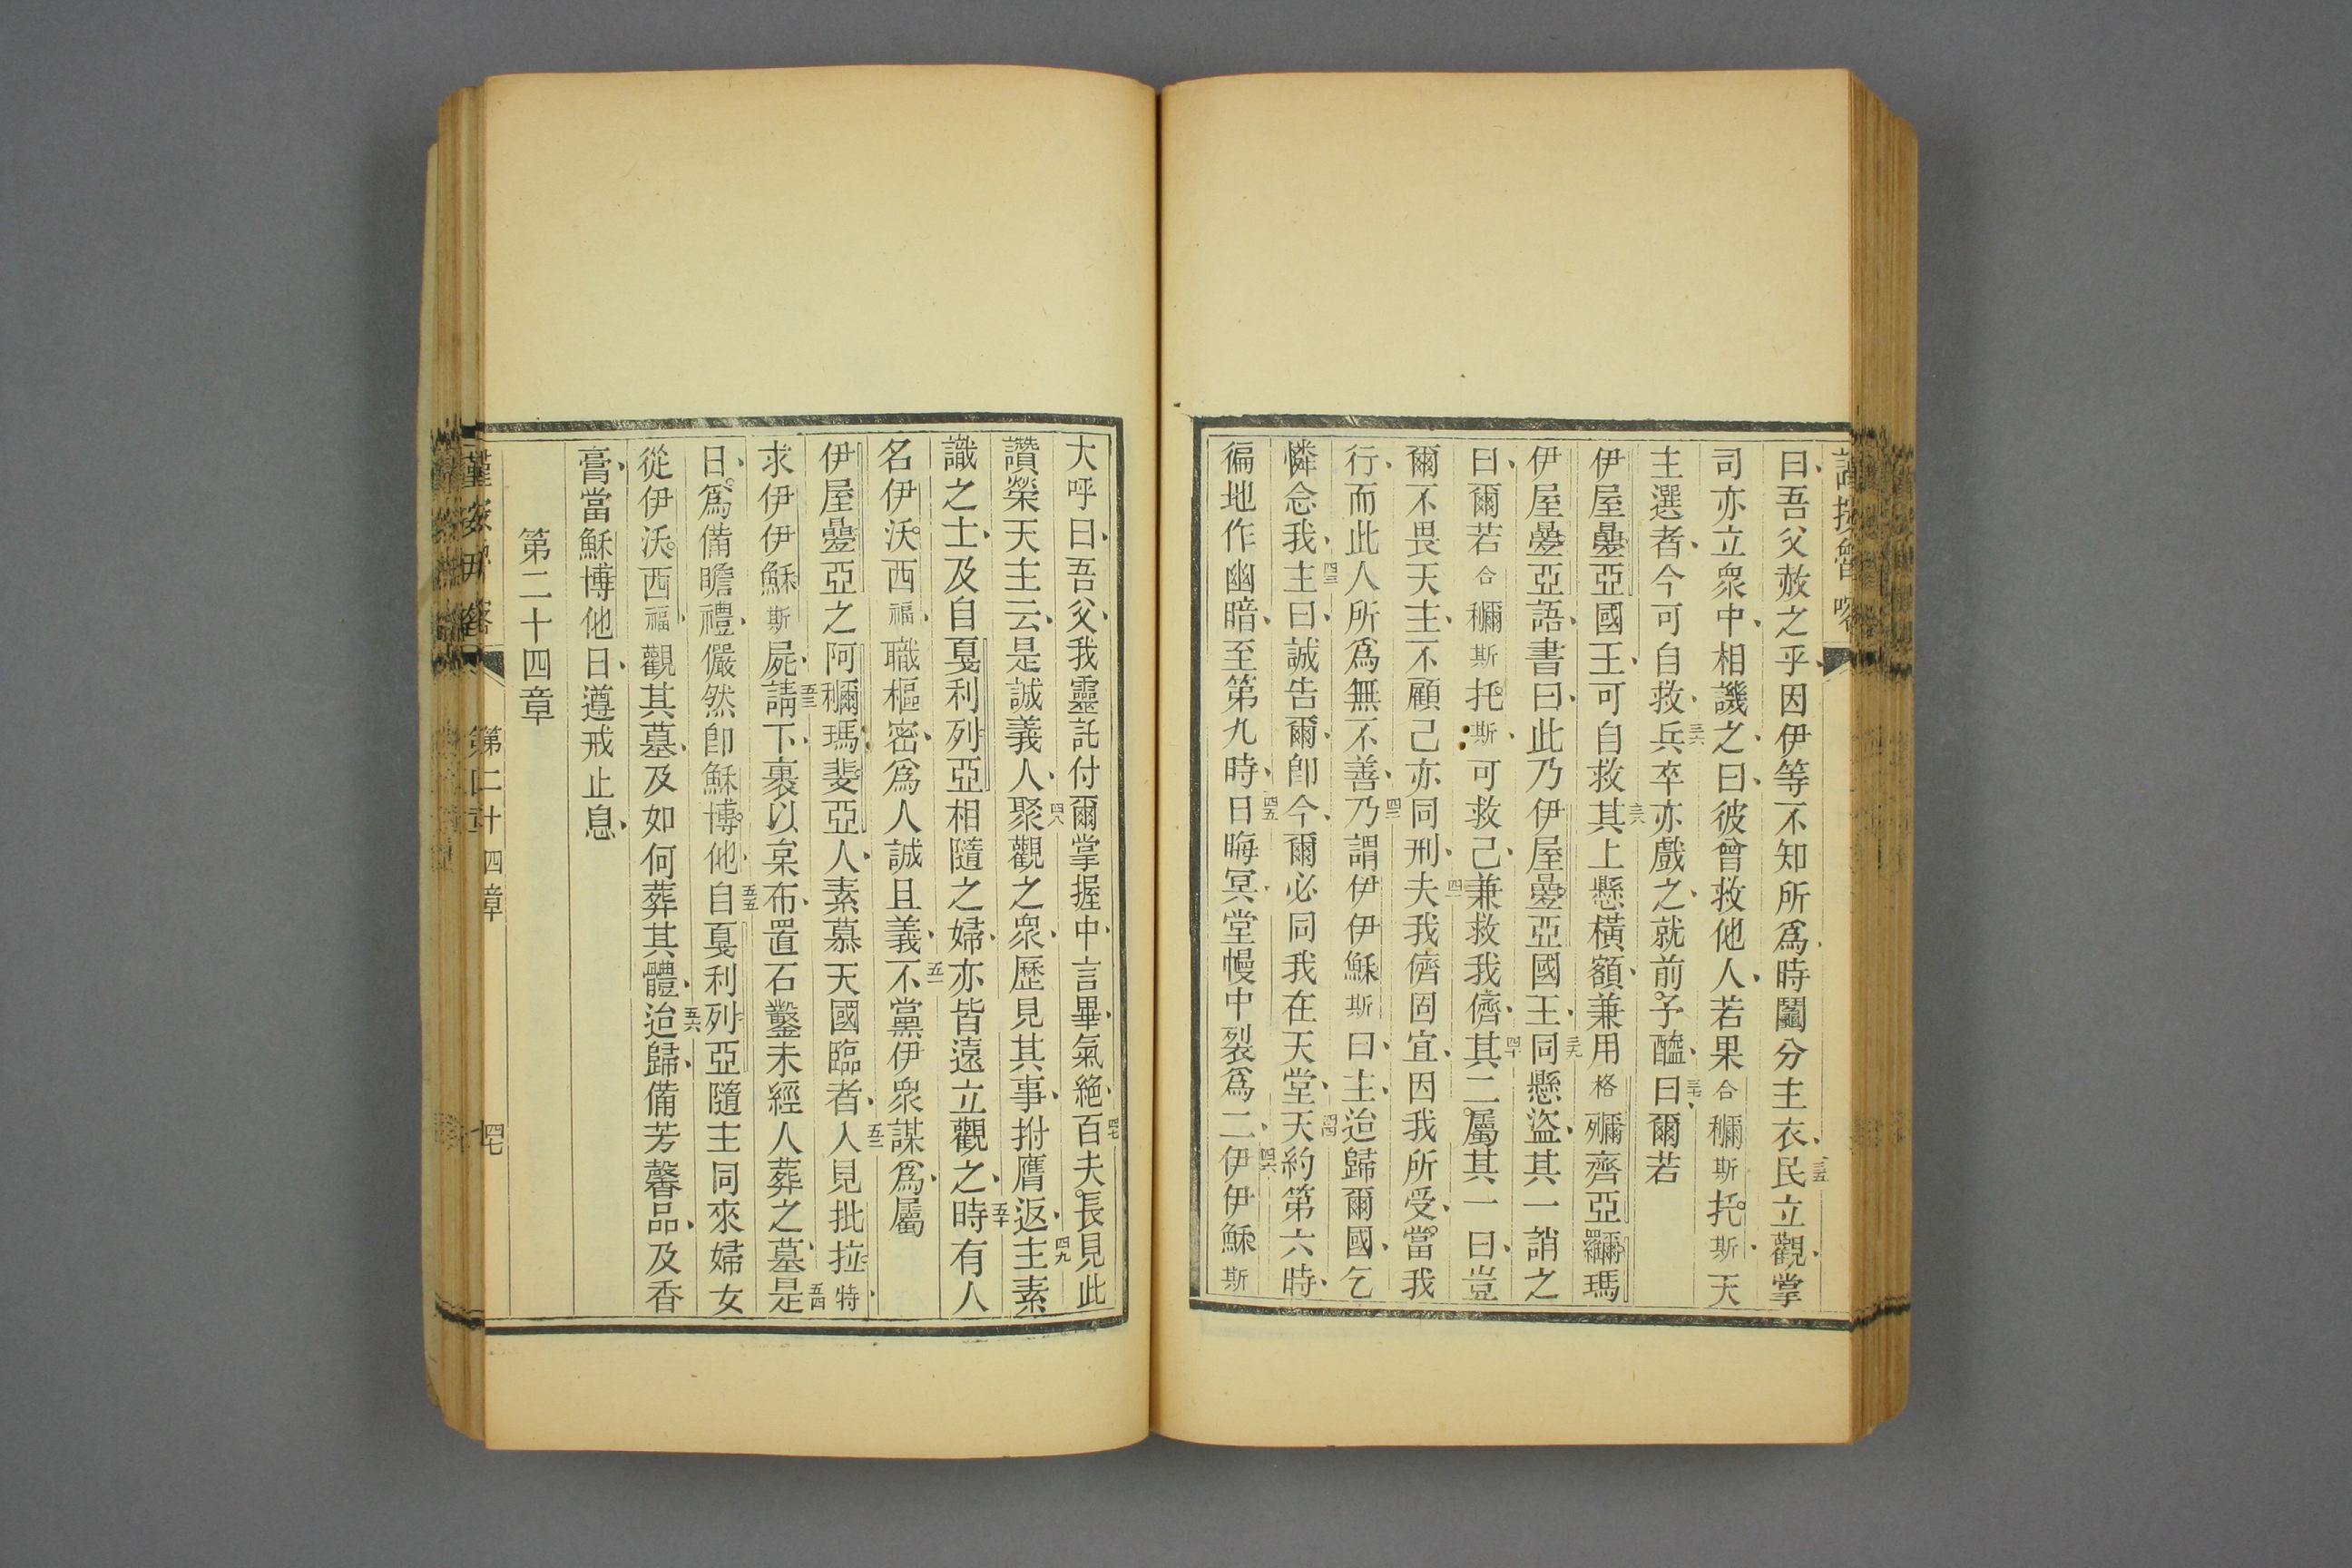 曰、吾父赦之乎、因伊等不知所爲、時鬮分主衣、三五民立觀、掌
司亦立衆中、相譏之、曰、彼曾救他人、若果合穪斯托斯、天
主選者、今可自救、三六兵卒亦戲之、就前予醯、三七曰、爾若
伊屋叠亞國王、可自救、三八其上懸橫額、兼用格㣆齊亞羅㣆瑪
伊屋叠亞語、書曰、此乃伊屋叠亞國王、三九同懸盜、其一誚之
曰、爾若合穪斯托斯、可救己、兼救我儕、四十其二屬其一曰、豈
爾不畏天主、不顧己亦同刑、四一夫我儕固宜、因我所受、當我
行、而此人所爲無不善、四二乃謂伊伊穌斯曰、主、迨歸爾國、乞
憐念我、四三主曰、誠告爾、卽今、爾必同我在天堂、四四天約第六時、
徧地作幽暗、至第九時、四五日晦冥、堂幔中裂爲二、四六伊伊穌斯
大呼曰、吾父、我靈託付爾掌握中、言畢、氣絶、四七百夫長見此
讚榮天主、云、是誠義人、四八聚觀之衆、歷見其事、拊膺返、四九主素
識之士、及自戛利列亞相隨之婦、亦皆遠立觀之、五十時有人
名伊沃西福、職樞密、爲人誠且義、五一不黨伊衆謀爲、屬
伊屋叠亞之阿穪瑪斐亞人、素慕天國臨者、五二人見批拉特、
求伊伊穌斯屍、五三請下、裹以枲布、置石鑿未經人葬之墓、五四是
日、爲備瞻禮、儼然卽穌博他、五五自戛利列亞隨主同來婦女
從伊沃西福、觀其墓、及如何葬其體、五六迨歸、備芳馨品、及香
膏、當穌博他日、遵戒止息、
第二十四章
第二十四章
四七